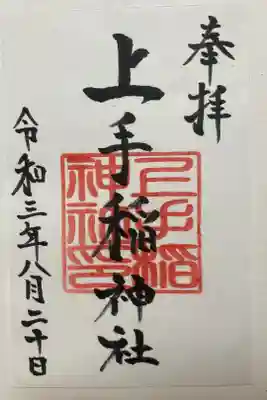 奉拝
上手稲神社
上手稲神社印
令和三年八月二十日